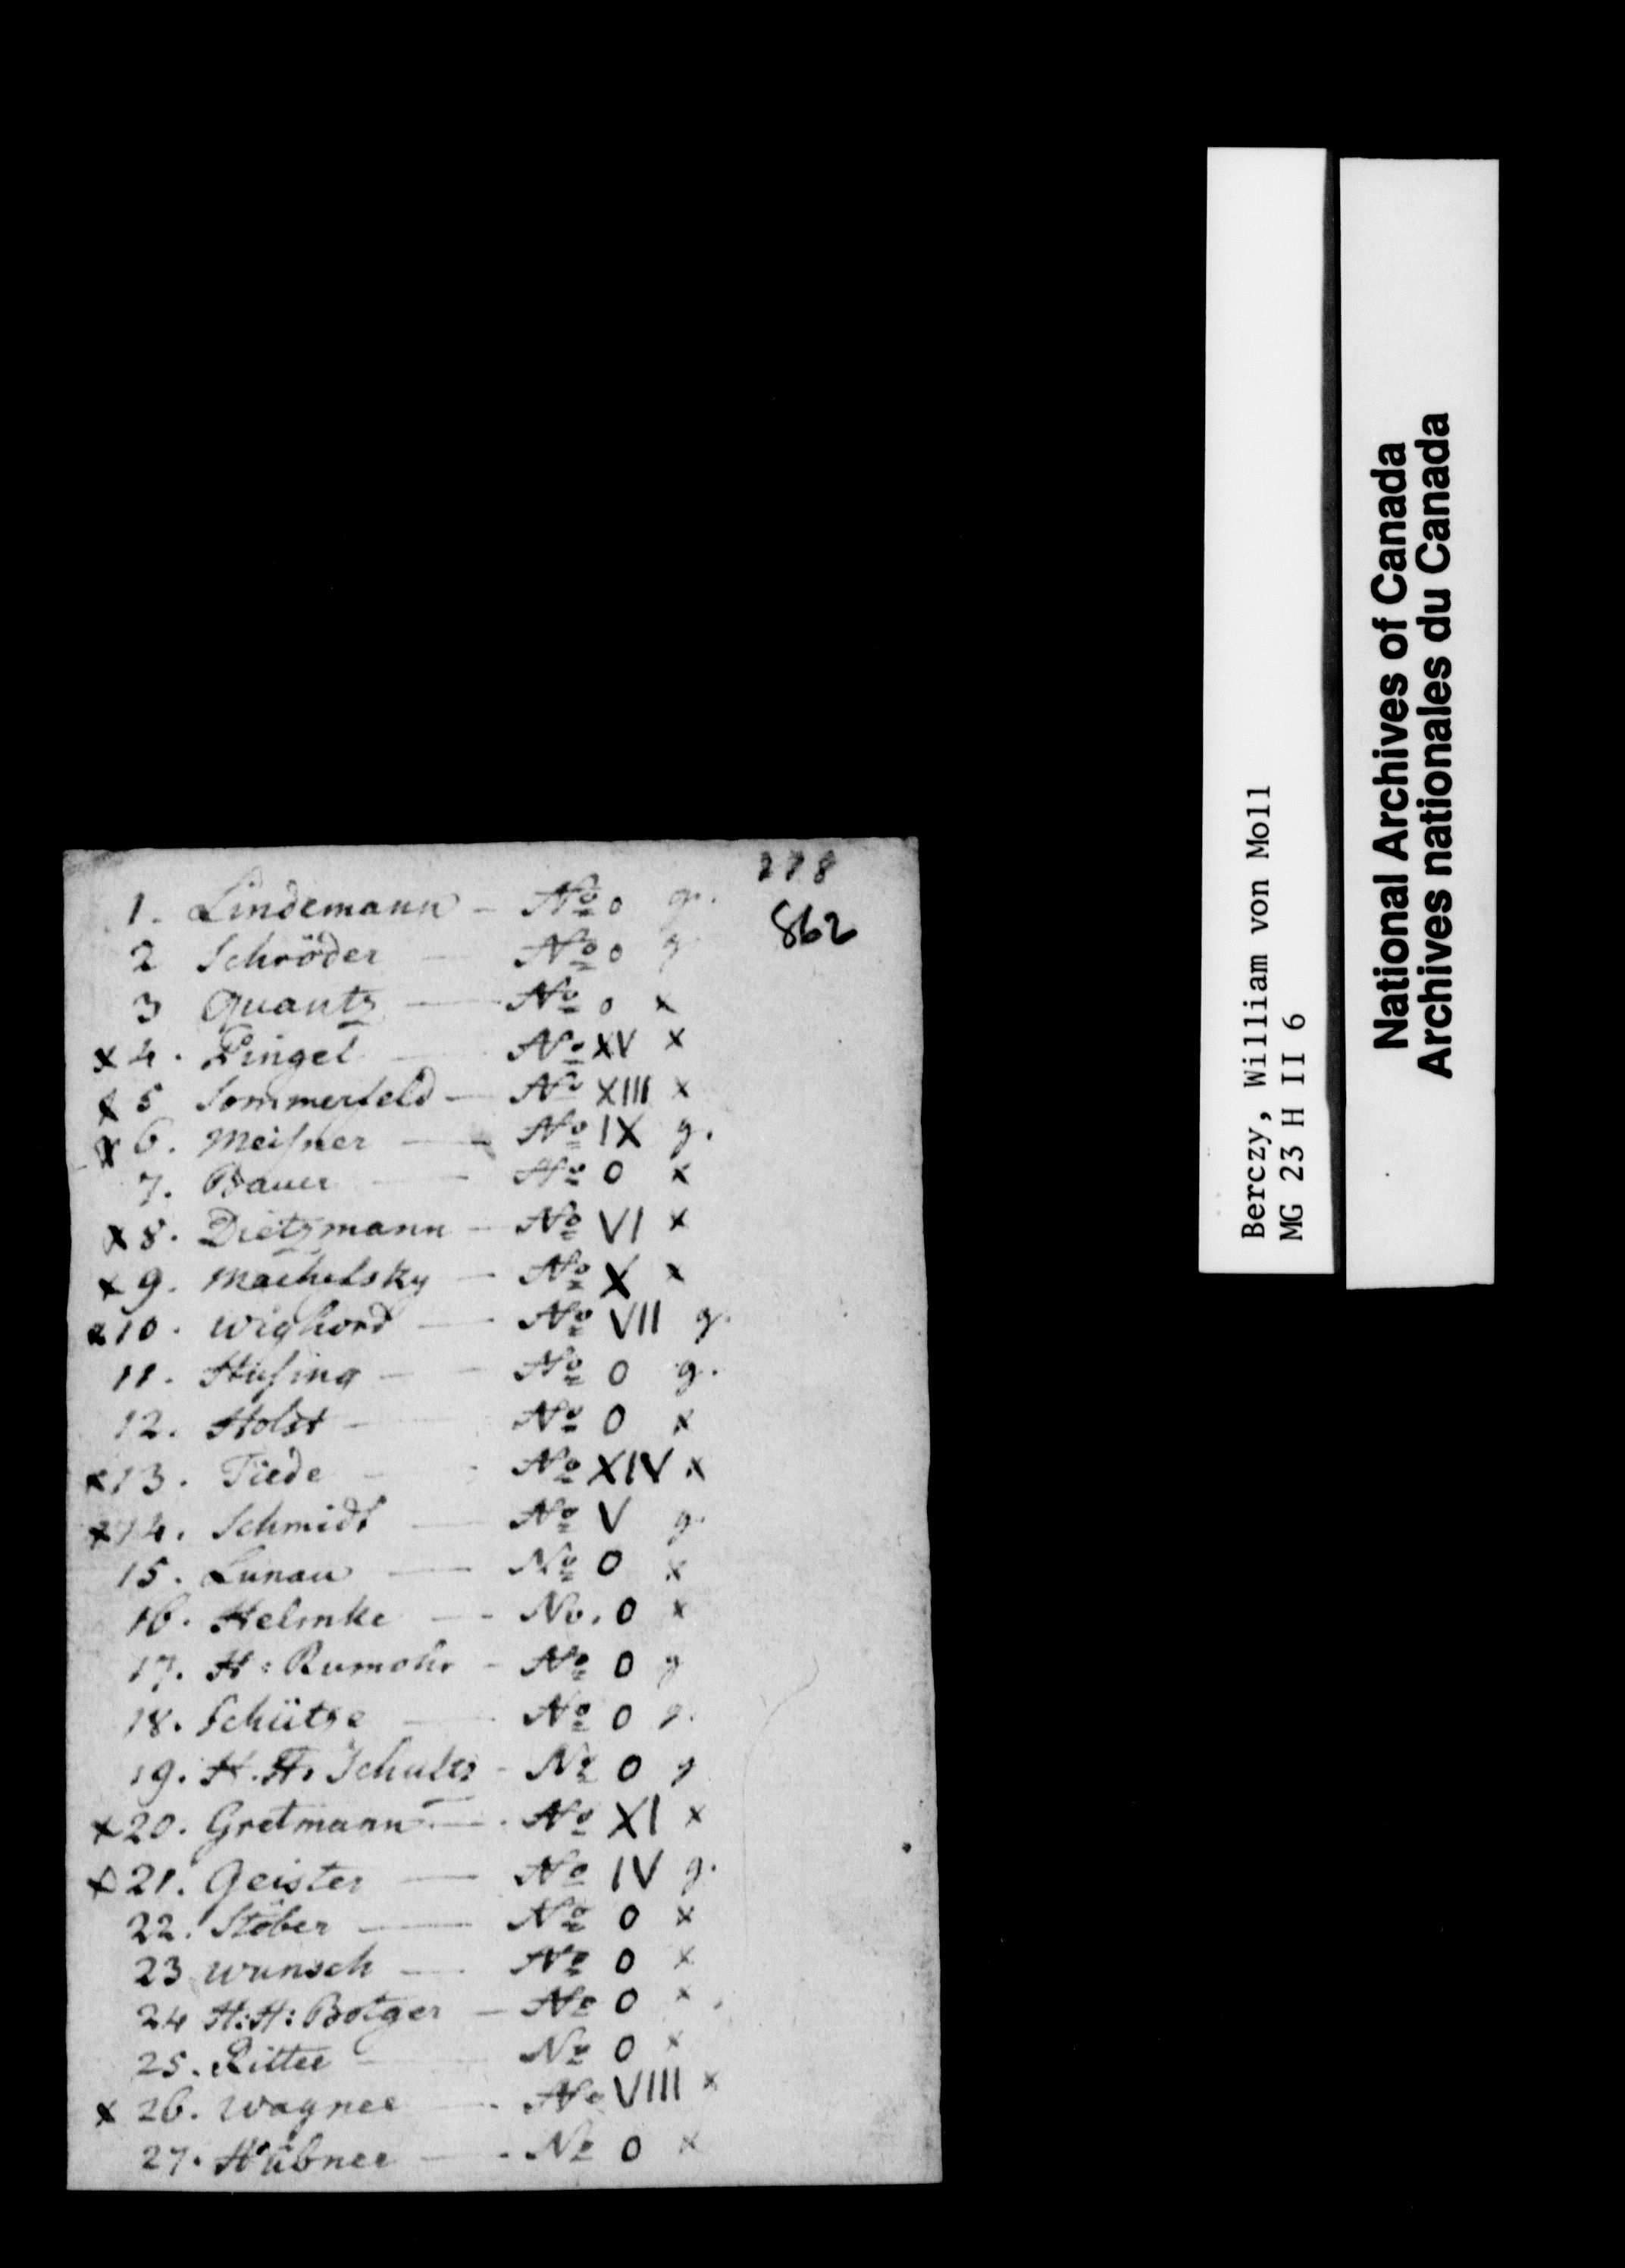 278
862
1. Lindemann - No 0 g.
2 Schröder - No 0 g
3 Quantz - No 0 x
x 4. Pingel - No XV x
x 5 Sommerfeld - No XIII x
x 6. Meißner - No IX g.
7. Bauer - No 0 x
x 8. Dietzmann - No VI x
x 9. Machelsky - No X x
x 10. Wighord - No VII g.
11. Hüsing - No 0 g.
12. Holst - No 0 x
x 13. Tiede - No XIV x
x 14. Schmidt - No V g.
15. Lunau - No 0 x
16. Helmke - No. 0 x
17. H: Rumohr - No 0 g
18. Schütze - No 0 g.
19. H. H. Schultz - No 0 g
x 20. Gretmann - No XI x
x 21. Geister - No IV g.
22. Stöber - No 0 x
23 Wunsch - No 0 x
24 H: H: Botger - No 0 x
25. Ritter - No 0 x
x 26. Wagner - No VIII x
27. Hübner - No 0 x
Berczy, William von Moll
MG 23 H II 6
National Archives of Canada
Archives nationales du Canada